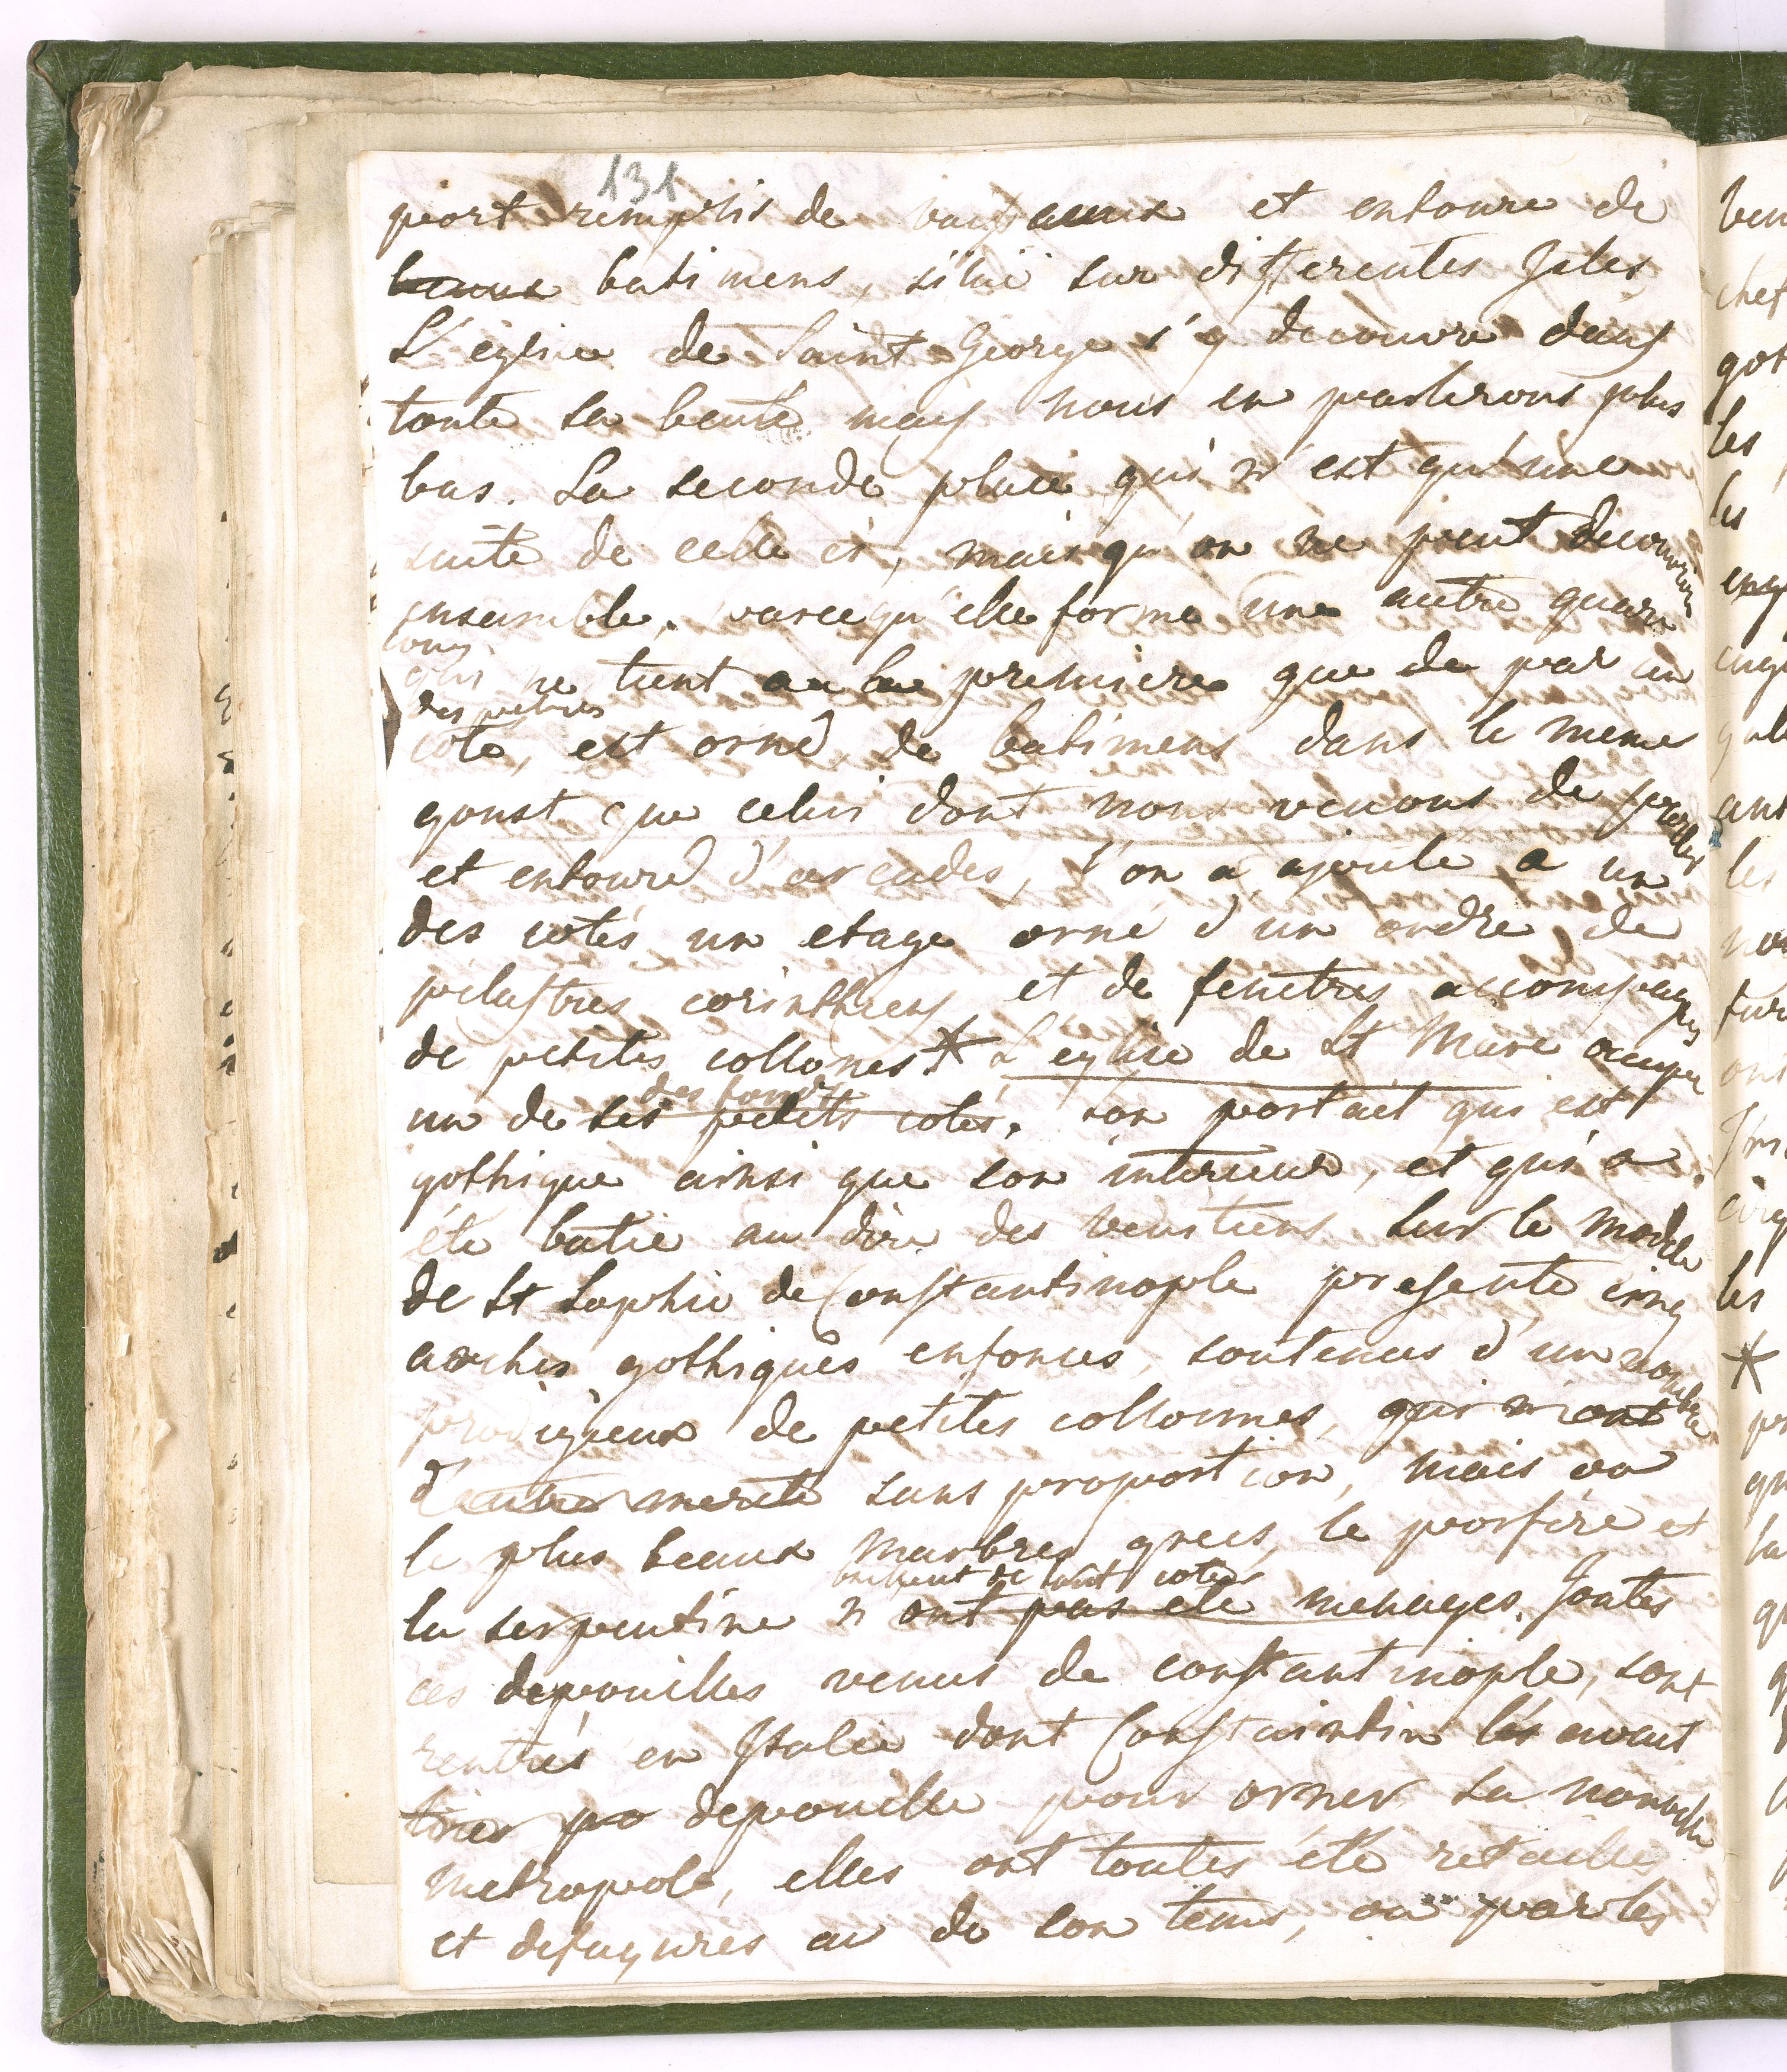 131
port remplis de vaissaeux et entouré de
beaux batimens, situé sur differentes Isles
L'église de Saint George s'y decouvre dans
toute sa beauté mais nous en parlerons plus
bas. La seconde place qui n'est qu'une
suite de celle ci, mais qu'on ne peut decouvrir
ensemble, parcequ'elle forme une autre quarré
long
qui ne tient a la premiere que de par un
des petits
coté, est orné de batimens dans le meme
goust que celui dont nous venons de parler
et entouré d'arcades, l'on a ajouté a un
des cotés un etage orné d'un ordre de
pilastres corinthiens et de fenetres accompagnés
de petites collones * L'eglise de St Marc occupe
des fonds
un de ses petits cotés. son portail qui est
gothique ainsi que son interieur, et qui a
été batie au dire des venitiens sur le modele
de St Sophie de Constantinople presente cinq
arches gothiques enfonces, soutenues d'un nombre
prodigieux de petites collonnes, qui n'ont
d'autre merite sans proportion, mais ou
le plus beaux marbres grecs, le porfire et
brillent de tout cotés
la serpentine n'ont pas été menages. Toutes
ces depouilles venus de constantinople, sont
rentrés en Italie dont Constaintin les avait
tirer po depouille pour orner sa nouvelle
metropole, elles ont toutes été retaillés
et defigurés ou de son tems, ou par les